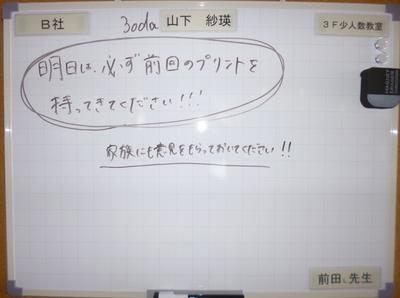 B社
3 odd
山下 紗瑛
3F少人数教室
明日は、必ず前回のプリントを
持ってきてください!!!
家族にも意見をもらっておいてください!!
前田 先生